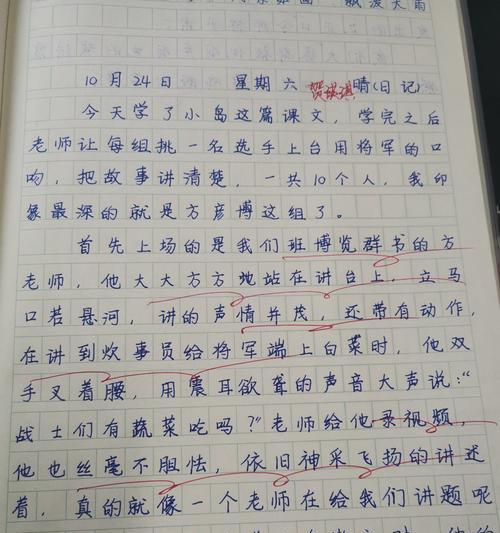 飘泼大雨
10月24日 星期六 晴(日记)
今天学了小岛这篇课文，学完之后
老师让每组挑一名选手上台用将军的口
吻，把故事讲清楚，一共10个人，我印
像最深的就是方彦博这组了。
首先上场的是我们班博览群书的方
老师，他大大方方地站在讲台上，立马
口若悬河，讲的声情并茂，还带有动作，
在讲到炊事员给将军端上白菜时，他双
手叉着腰，用震耳欲聋的声音大声说：“
战士们有蔬菜吃吗？”老师给他录视频，
他也丝毫不胆怯，依旧神采飞扬的讲述
着，真的就像一个老师在给我们讲题呢